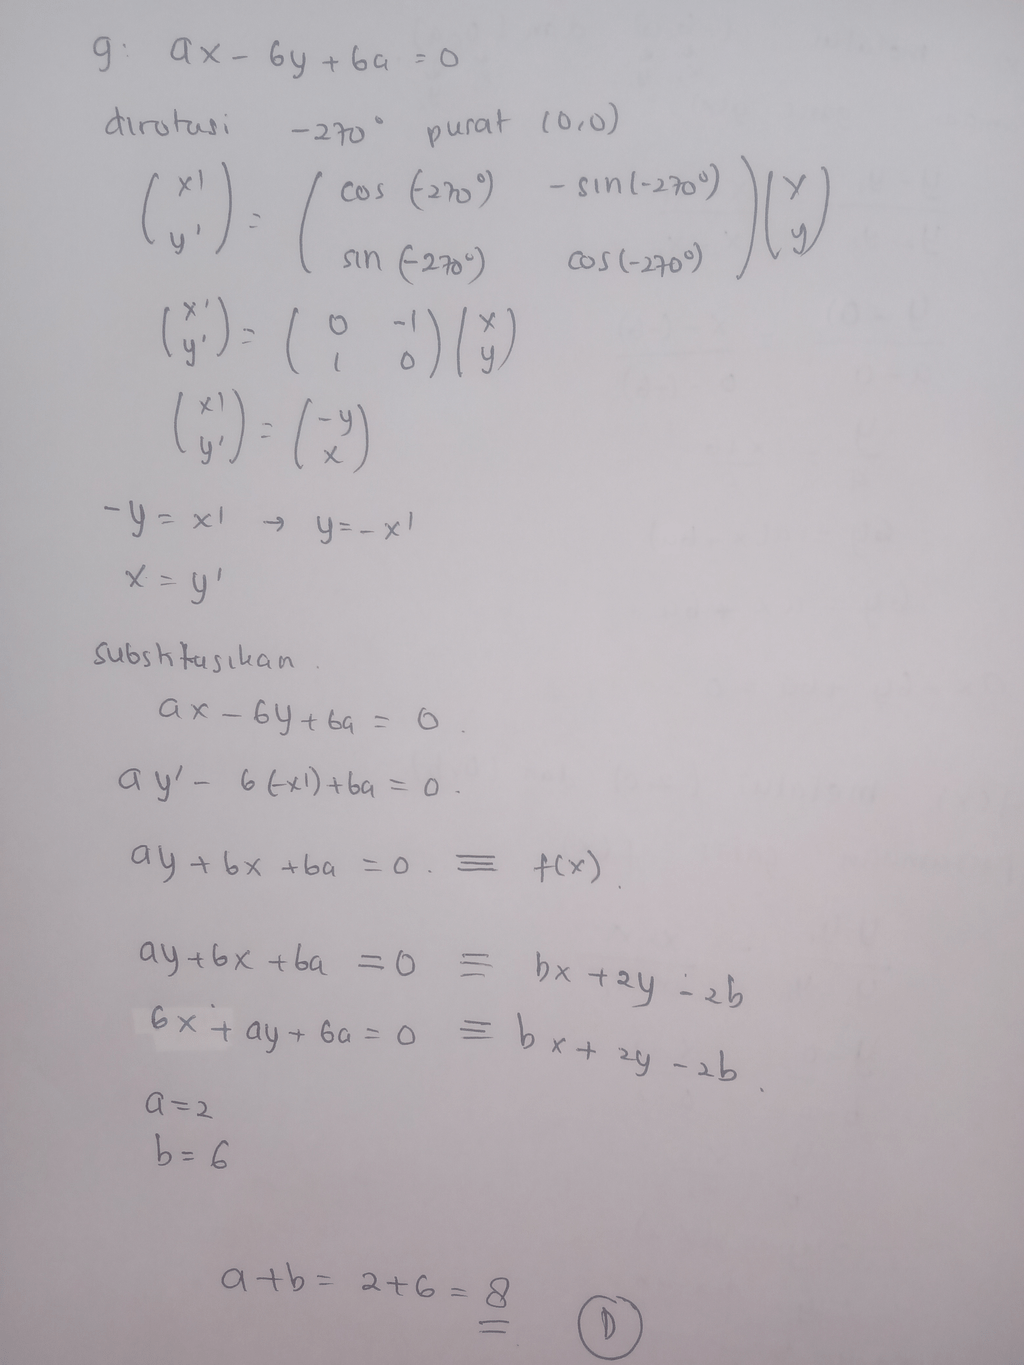 g: ax - 6y + 6a = 0
dirotasi -270° pusat (0,0)
(x' y') = (cos (-270°) -sin(-270°) sin (-270°) cos(-270°)) (x y)
(x' y') = (0 -1 1 0) (x y)
(x' y') = (-y x)
-y = x' → y = -x'
x = y'
substitusikan.
ax - 6y + 6a = 0.
ay' - 6(-x') + 6a = 0.
ay + 6x + 6a = 0. ≡ f(x).
ay + 6x + 6a = 0 ≡ bx + 2y - 2b
6x + ay + 6a = 0 ≡ bx + 2y - 2b.
a = 2
b = 6
a + b = 2 + 6 = 8
D